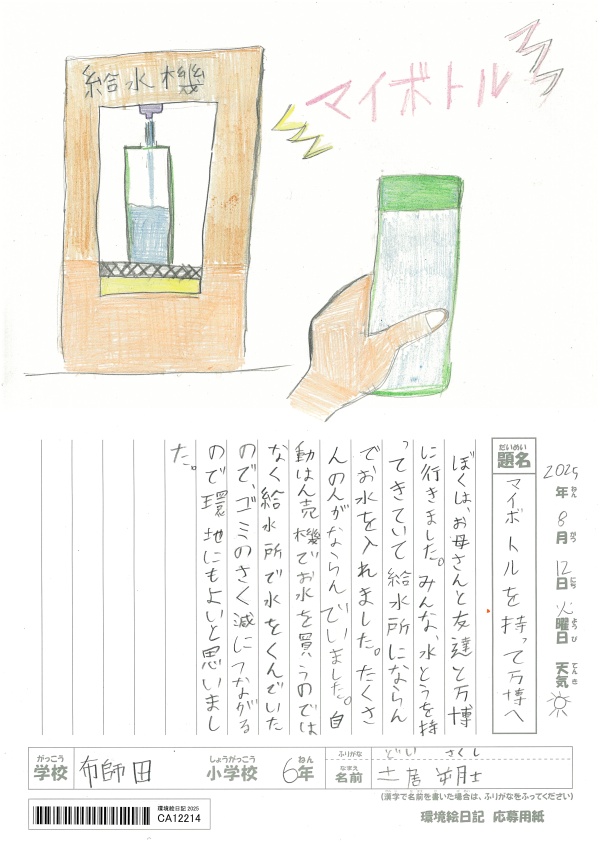 給水機
マイボトル
2025年 8月 12日 火曜日 天気
ねん
がつ
にち
ようび
てんき
だいめい
題名
マイボトルを持って万博へ
ぼくは、お母さんと友達と万博
に行きました。みんな、水とうを持
ってきていて給水所にならん
でお水を入れました。たくさ
んの人がならんでいました。自
動はん売機でお水を買うのでは
なく給水所で水をくんでいた
ので、ゴミのさく減につながる
ので環地にもよいと思いまし
た。
がっこう
学校
布師田
しょうがっこう
小学校
6年
ねん
ふりがな
どい さくし
なまえ
名前
土居
(漢字で名前を書いた場合は、ふりがなをふってください)
環境絵日記 2025
CA12214
環境絵日記 応募用紙